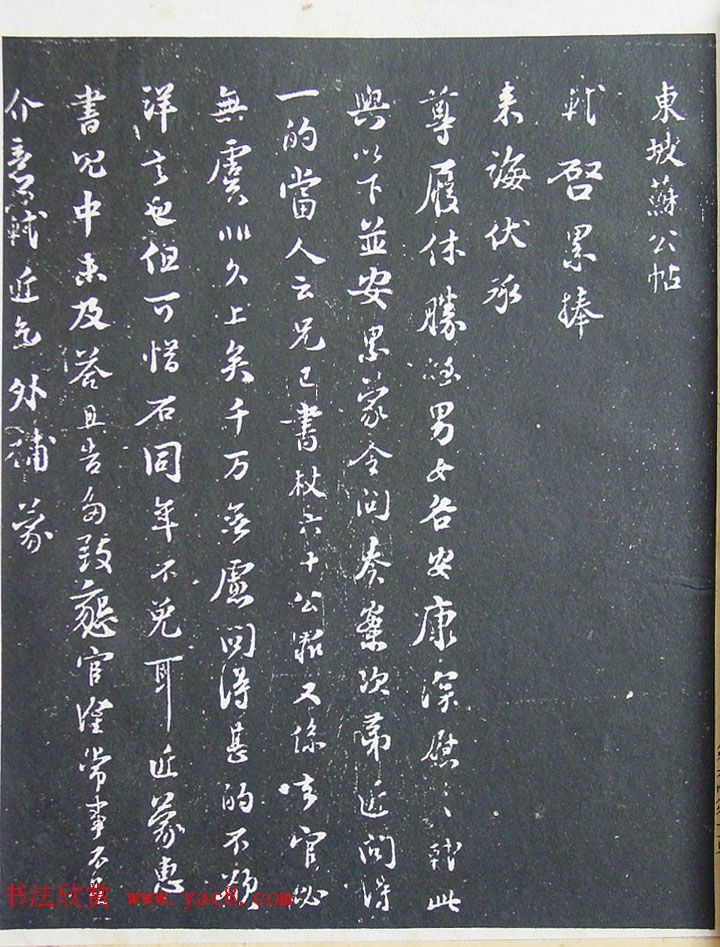 東坡蘇公帖
軾啓累捧
来誨伏承
尊履休勝男女各安康深慰〻軾此
與以下並安累蒙令问奏案次第近问得
一的當人云兄已書杖六十公罪又係官必
無虞非久上矣千万无慮问得甚的不欲
詳言也但可惜石同年不免耳近蒙惠
書兄中未及荅且告為致懇官常事不
介意軾近乞外補蒙
书法欣赏 www.yac8.com